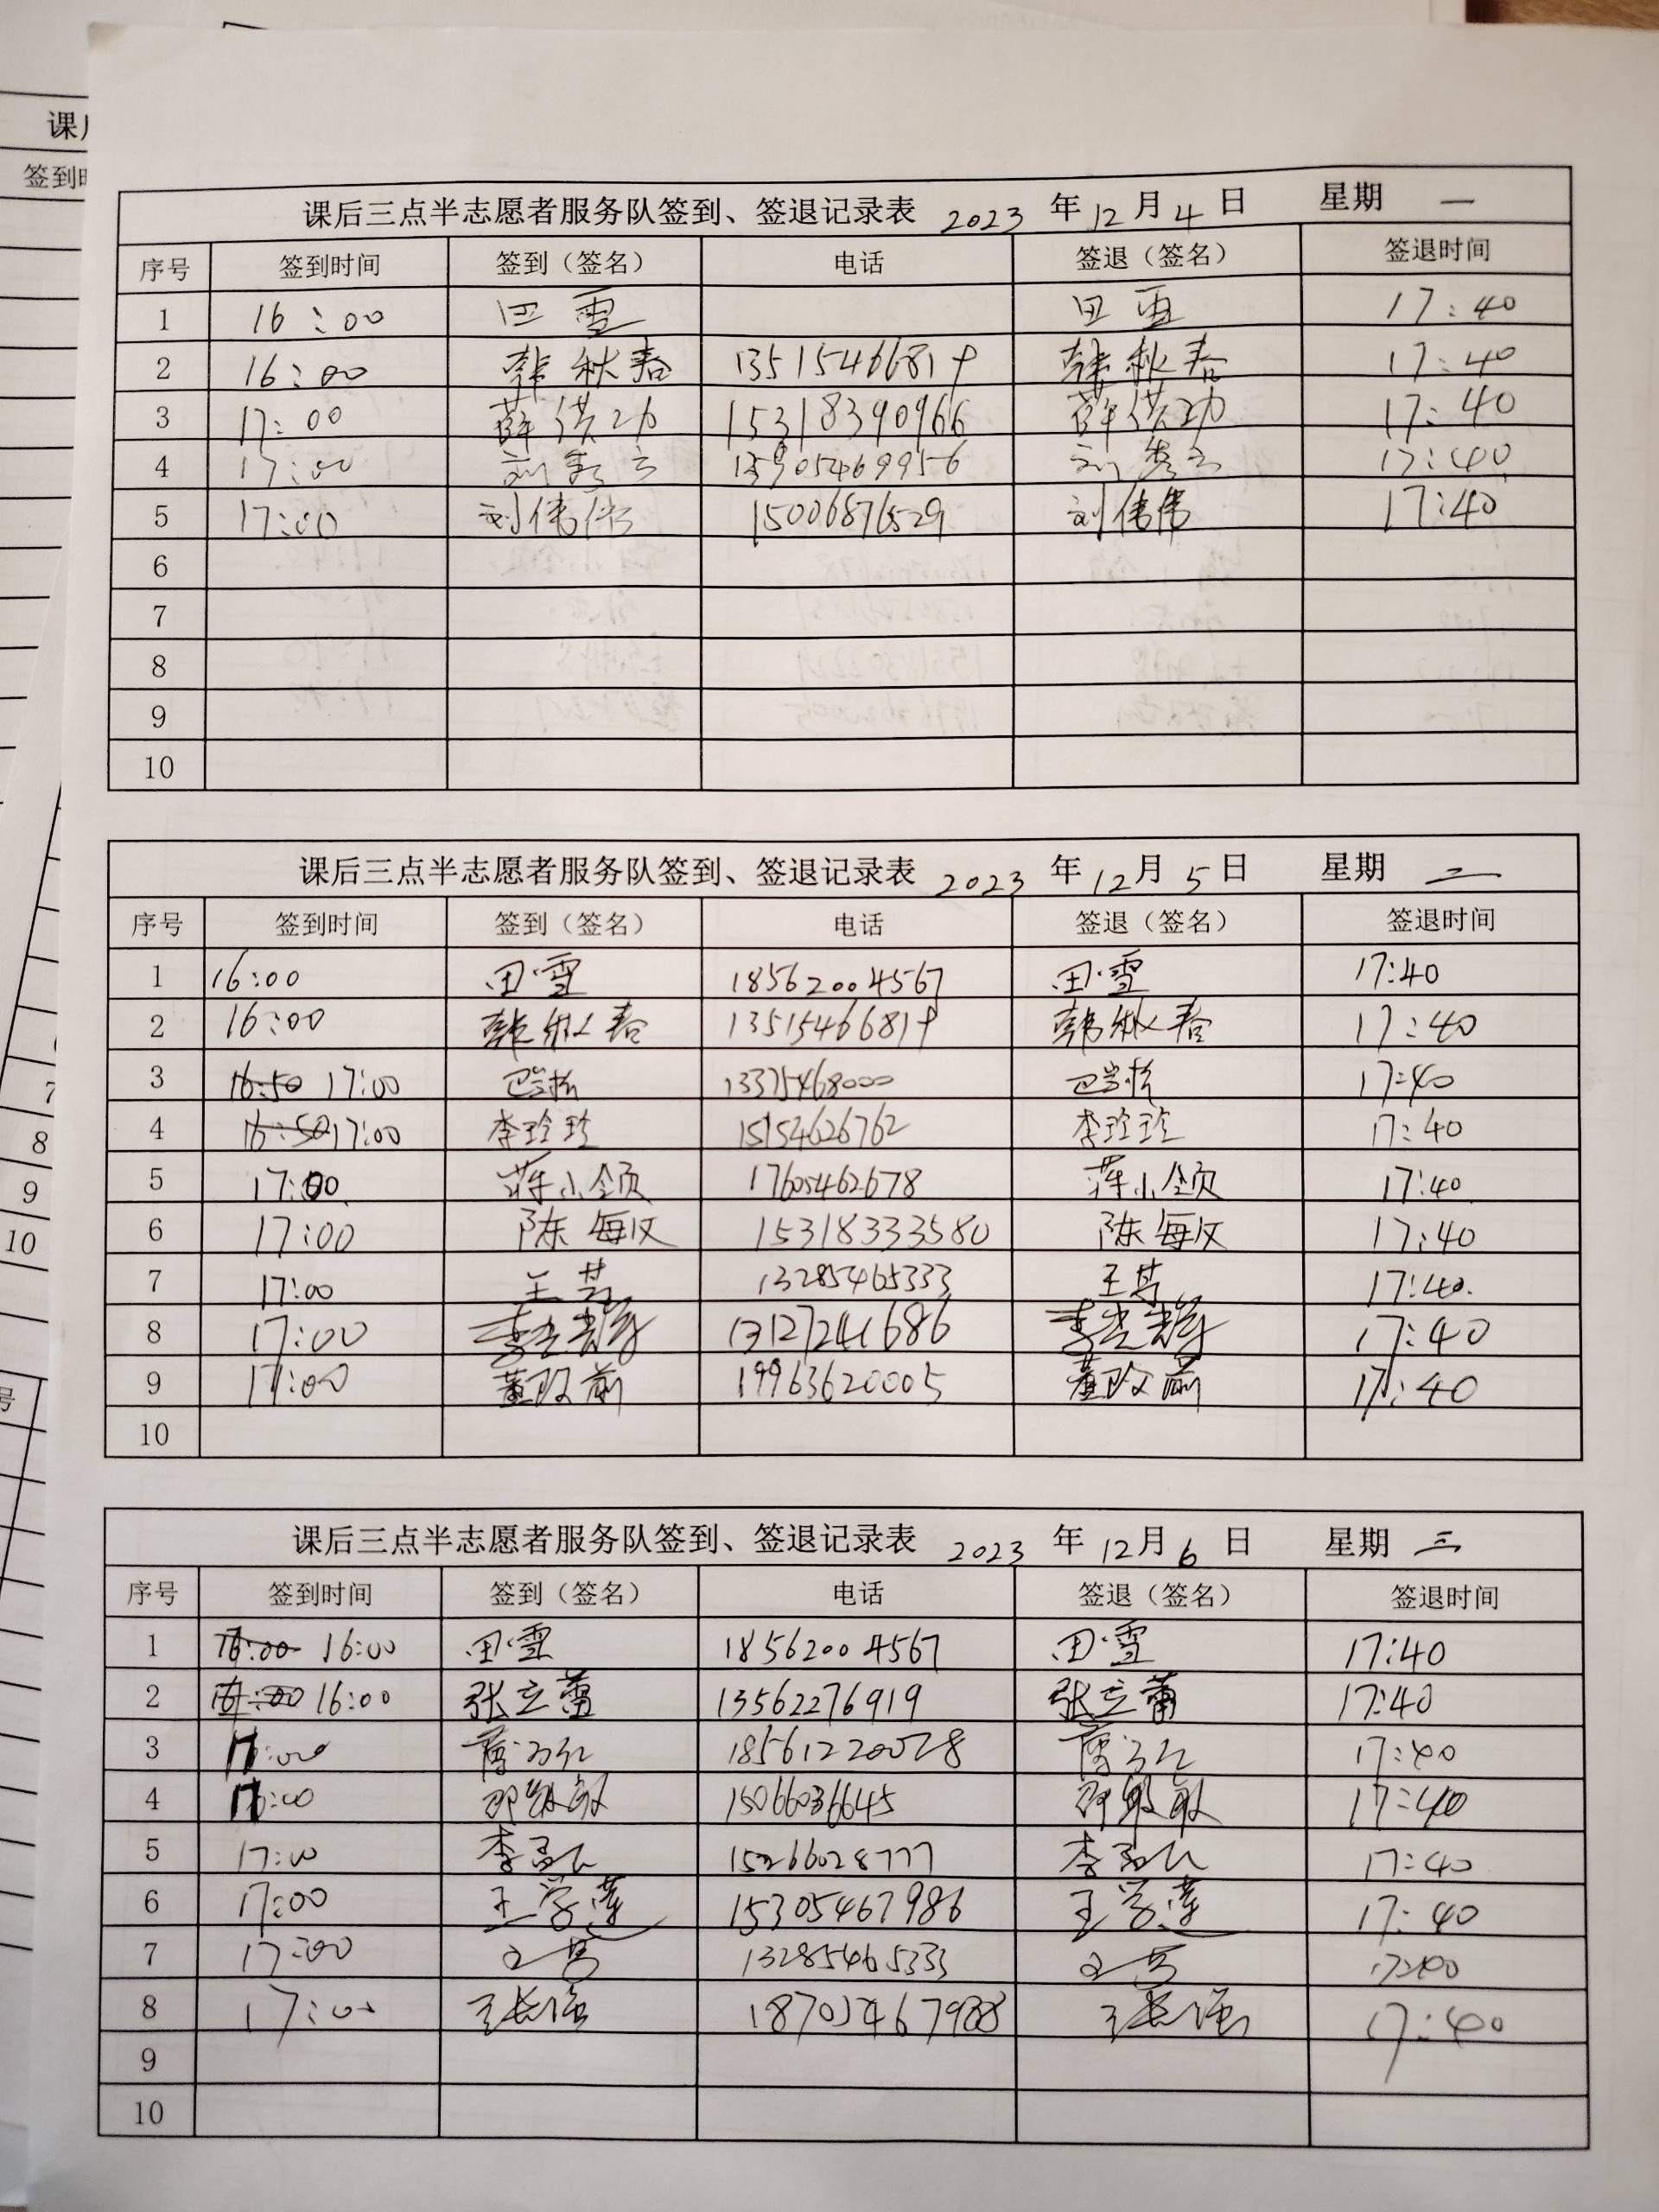 课后三点半志愿者服务队签到、签退记录表 2023 年 12 月 4 日 星期 一
序号 签到时间 签到（签名） 电话 签退（签名） 签退时间
1 16:00 田雪 田雪 17:40
2 16:00 韩秋春 韩秋春 17:40
3 17:00 薛洪功 15318390966 薛洪功 17:40
4 17:00 13905469956 17:40
5 17:00 刘伟伟 15006876529 刘伟伟 17:40
6
7
8
9
10
课后三点半志愿者服务队签到、签退记录表 2023 年 12 月 5 日 星期 二
序号 签到时间 签到（签名） 电话 签退（签名） 签退时间
1 16:00 田雪 18562004567 田雪 17:40
2 16:00 韩秋春 韩秋春 17:40
3 16:50 17:00 13375468000 17:40
4 16:50 17:00 李玲玲 15154626762 李玲玲 17:40
5 17:00 蒋小领 17605462678 蒋小领 17:40
6 17:00 陈每文 15318333580 陈每文 17:40
7 17:00 王芳 13285465333 王芳 17:40
8 17:00 13127241686 17:40
9 17:00 董改前 19963620005 董改前 17:40
10
课后三点半志愿者服务队签到、签退记录表 2023 年 12 月 6 日 星期 三
序号 签到时间 签到（签名） 电话 签退（签名） 签退时间
1 16:00 16:00 田雪 18562004567 田雪 17:40
2 16:00 张立蕾 13562276919 张立蕾 17:40
3 17:00 18561220028 17:40
4 17:00 15066036645 17:40
5 17:00 15266028777 17:40
6 17:00 王学莲 15305467986 王学莲 17:40
7 17:00 13285465333 17:40
8 17:00 王长征 王长征 17:40
9
10
课后
签到时
7
8
9
10
号